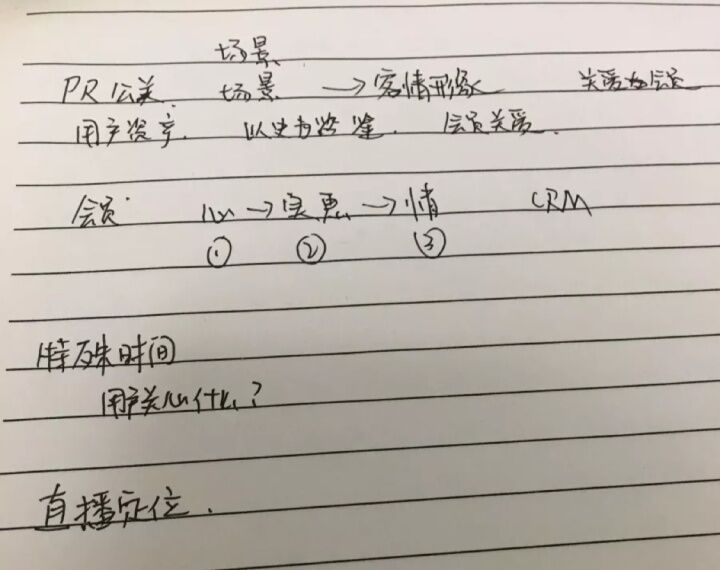 场景
PR公关 场景 →客情形象 关爱为会员
用户资产. 以史为 鉴. 会员关爱.
会员: 心→实惠→情 CRM
① ② ③
特殊时间
用户关心什么?
直播定位.